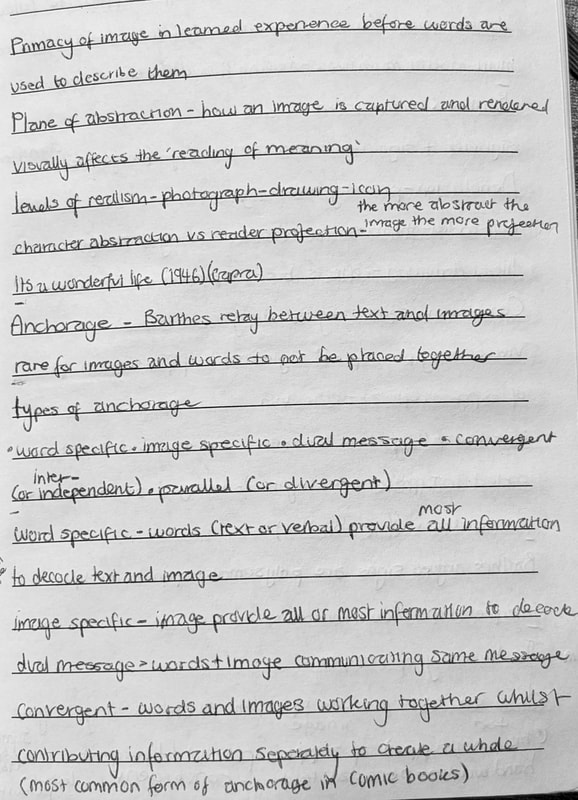 Primacy of image in learned experience before words are
used to describe them
Plane of abstraction - how an image is captured and rendered
visually affects the 'reading of meaning'
levels of realism - photograph - drawing - icon
the more abstract the
character abstraction vs reader projection - image the more projection
Its a wonderful life (1946) (Capra)
Anchorage - Barthes relay between text and images
rare for images and words to not be placed together
types of anchorage
• word specific • image specific • dual message • convergent
inter-
(or independent) • parallel (or divergent)
most
word specific - words (text or verbal) provide all information
to decode text and image
image specific - image provide all or most information to decode
dual message > words + image communicating same message
convergent - words and images working together whilst
contributing information seperately to create a whole
(most common form of anchorage in comic books)